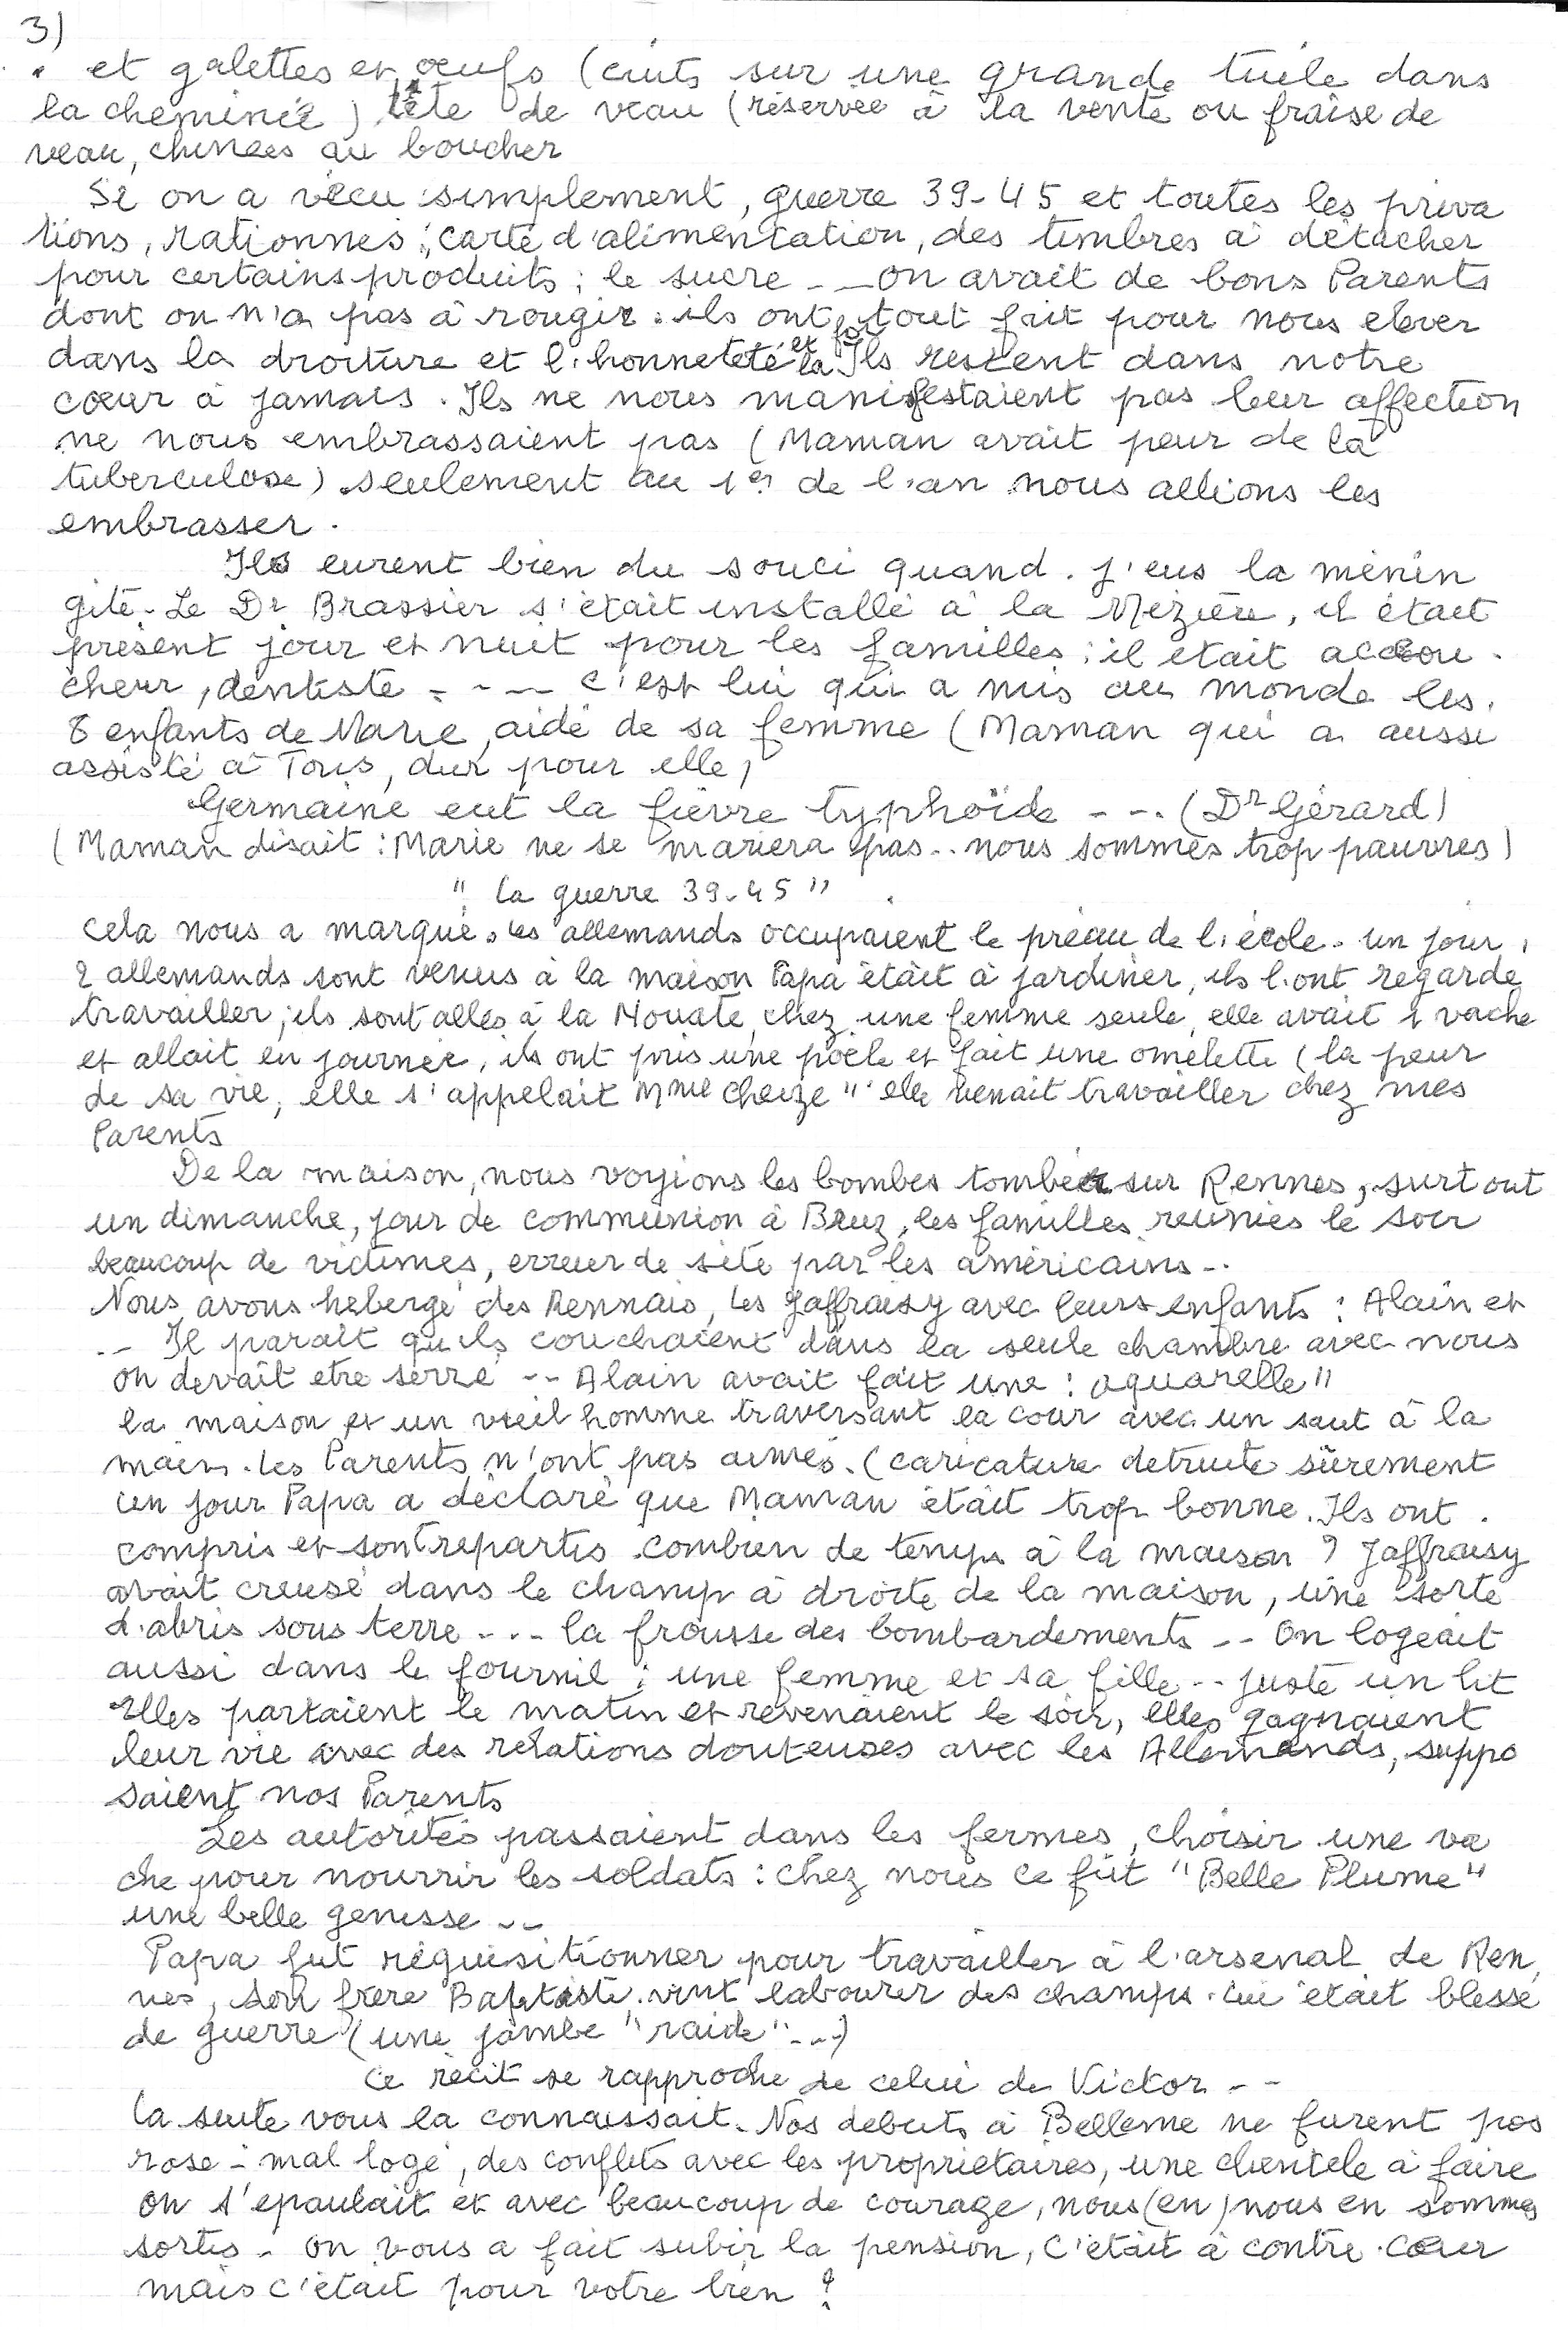 3)
. et galettes et oeufs (cuits sur une grande tuile dans
la cheminée) tête de veau (réservée à la vente ou fraise de
veau, chinées au boucher
Si on a vécu simplement, guerre 39-45 et toutes les priva
tions, rationnés ; carte d'alimentation, des timbres à détacher
pour certains produits ; le sucre - - on avait de bons Parents
dont on n'a pas à rougir : ils ont tout fait pour nous elever
dans la droiture et l'honneteté et la foi Ils restent dans notre
coeur à jamais. Ils ne nous manifestaient pas leur affection
ne nous embrassaient pas (Maman avait peur de la
tuberculose) seulement au 1er de l'an nous allions les
embrasser.
Ils eurent bien du souci quand j'eus la ménin
gite - Le Dr Brassier s'était installé à la Mézière, il était
présent jour et nuit pour les familles ; il était accou -
cheur, dentiste - - - c'est lui qui a mis au monde les
8 enfants de Marie, aidé de sa femme (Maman qui a aussi
assisté à Tous, dur pour elle)
Germaine eut la fièvre typhoïde - - . (Dr Gérard)
(Maman disait : Marie ne se mariera pas .. nous sommes trop pauvres)
" la guerre 39-45 "
Cela nous a marqué. les allemands occupaient le préau de l'école. un jour,
2 allemands sont venus à la maison Papa était à jardiner, ils l'ont regardé
travailler, ils sont allés à la Nouate, chez une femme seule, elle avait 1 vache
et allait en journée, ils ont pris une poêle et fait une omelette (la peur
de sa vie, elle s'appelait Mme Cheize " elle venait travailler chez mes
Parents
De la maison, nous voyions les bombes tomber sur Rennes, surtout
un dimanche, jour de communion à Bruz, les familles réunies le soir
beaucoup de victimes, erreur de site par les américains..
Nous avons hébergé des Rennais, les Jaffraisy avec leurs enfants : Alain et
-- Il parait qu'ils couchaient dans la seule chambre avec nous
on devait etre serré -- Alain avait fait une : aquarelle "
la maison et un vieil homme traversant la cour avec un saut à la
main. les Parents n'ont pas aimés. (caricature detruite sûrement
un jour Papa a déclaré que Maman était trop bonne. Ils ont
compris et sont repartis. combien de temps à la maison ? Jaffraisy
avait creusé dans le champ à droite de la maison, une sorte
d'abris sous terre - - - la frousse des bombardements -- On logeait
aussi dans le fournil ; une femme et sa fille -- juste un lit
Elles partaient le matin et revenaient le soir, elles gagnaient
leur vie avec des relations douteuses avec les Allemands, suppo
saient nos Parents
Les autorités passaient dans les fermes, choisir une va
che pour nourrir les soldats : chez nous ce fût "Belle Plume"
une belle genisse --
Papa fut réquisitionner pour travailler à l'arsenal de Ren
nes, son frère Baptiste vint labourer des champs. Lui était blessé
de guerre (une jambe "raide" - - -)
Ce récit se rapproche de celui de Victor - -
La suite vous la connaissait. Nos debuts à Belleme ne furent pas
rose - mal logé, des conflits avec les propriétaires, une clientele à faire
on s'epaulait et avec beaucoup de courage, nous (en) nous en sommes
sortis - on vous a fait subir la pension, C'était à contre-coeur
mais c'était pour votre bien ?